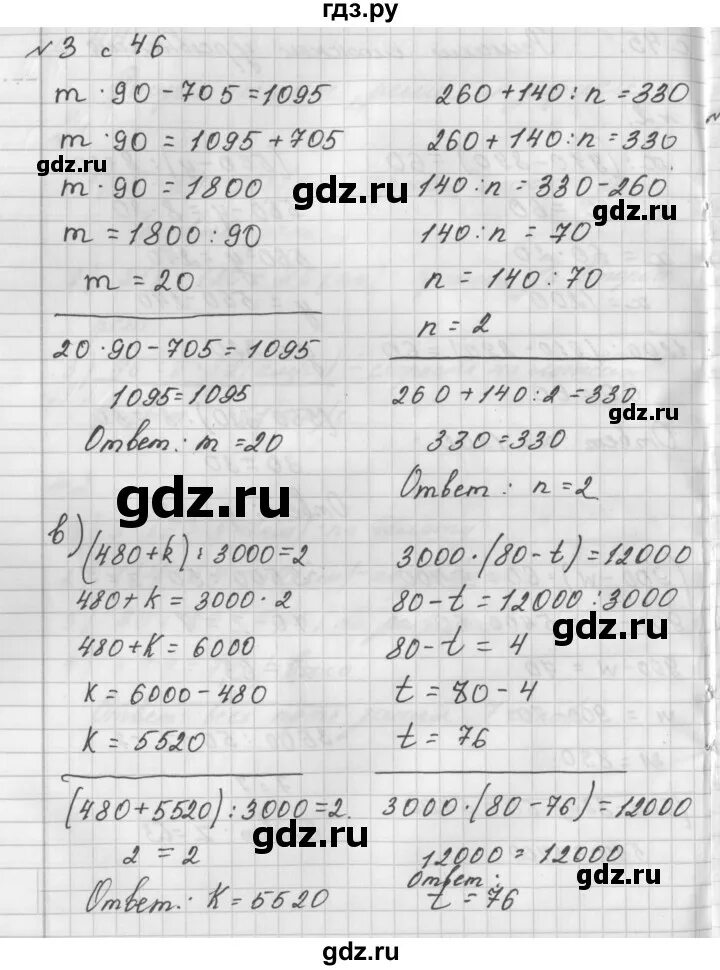 гдз.ру
№ 3 с 46
m · 90 - 705 = 1095
m · 90 = 1095 + 705
m · 90 = 1800
m = 1800 : 90
m = 20
20 · 90 - 705 = 1095
1095 = 1095
Ответ: m = 20
260 + 140 : n = 330
260 + 140 : n = 330
140 : n = 330 - 260
140 : n = 70
n = 140 : 70
n = 2
260 + 140 : 2 = 330
330 = 330
Ответ: n = 2
в) (480 + k) : 3000 = 2
480 + k = 3000 · 2
480 + k = 6000
k = 6000 - 480
k = 5520
(480 + 5520) : 3000 = 2.
2 = 2
Ответ: k = 5520
3000 · (80 - t) = 12000
80 - t = 12000 : 3000
80 - t = 4
t = 80 - 4
t = 76
3000 · (80 - 76) = 12000
12000 = 12000
Ответ:
t = 76
gdz.ru
gdz.ru
gdz.ru
gdz.ru
gdz.ru
gdz.ru
gdz.ru
gdz.ru
gdz.ru
gdz.ru